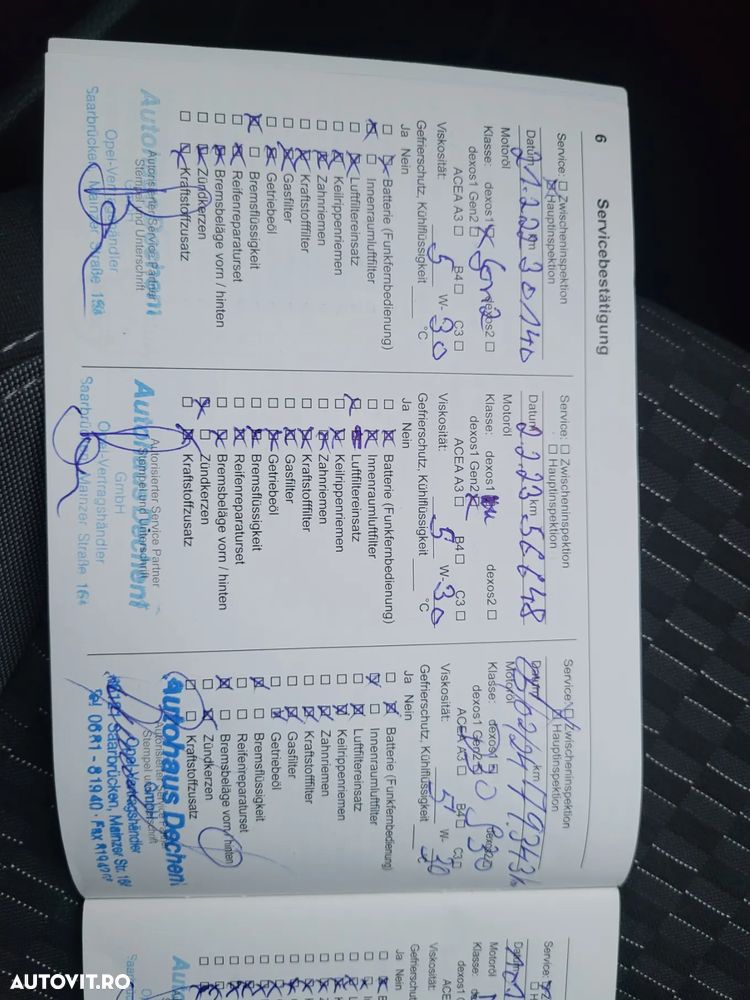 6
Servicebestätigung
Service: ☐ Zwischeninspektion
☒ Hauptinspektion
Datum 21.2.22 km 30140
Motoröl
Klasse: dexos1 ☒ dexos2 ☐
dexos1 Gen2 ☐
ACEA A3 ☐ B4 ☐ C3 ☐
Viskosität: 5 W- 30
Gefrierschutz, Kühlflüssigkeit °C
Ja Nein
Batterie (Funkfernbedienung)
Innenraumluftfilter
Luftfiltereinsatz
Keilrippenriemen
Zahnriemen
Kraftstofffilter
Gasfilter
Getriebeöl
Bremsflüssigkeit
Reifenreparaturset
Bremsbeläge vorn / hinten
Zündkerzen
Kraftstoffzusatz
Autorisierter Service Partner
Stempel und Unterschrift
Opel-Vertragshändler
Saarbrücken, Mainzer Straße
Service: ☐ Zwischeninspektion
☐ Hauptinspektion
Datum 2.2.23 km 56648
Motoröl
Klasse: dexos1 dexos2 ☐
dexos1 Gen2 ☒
ACEA A3 ☐ B4 ☐ C3 ☐
Viskosität: 5 W- 30
Gefrierschutz, Kühlflüssigkeit °C
Ja Nein
Batterie (Funkfernbedienung)
Innenraumluftfilter
Luftfiltereinsatz
Keilrippenriemen
Zahnriemen
Kraftstofffilter
Gasfilter
Getriebeöl
Bremsflüssigkeit
Reifenreparaturset
Bremsbeläge vorn / hinten
Zündkerzen
Kraftstoffzusatz
Autorisierter Service Partner
Stempel und Unterschrift
Autohaus Dechent
GmbH
Opel-Vertragshändler
Mainzer Straße
Service: Zwischeninspektion
Hauptinspektion
Datum km
Motoröl
Klasse: dexos1
dexos1 Gen2
ACEA A3 ☐ B4 ☐ C3 ☐
Viskosität: 5 W- 30
Gefrierschutz, Kühlflüssigkeit °C
Ja Nein
Batterie (Funkfernbedienung)
Innenraumluftfilter
Luftfiltereinsatz
Keilrippenriemen
Zahnriemen
Kraftstofffilter
Gasfilter
Getriebeöl
Bremsflüssigkeit
Reifenreparaturset
Bremsbeläge vorn / hinten
Zündkerzen
Kraftstoffzusatz
Autohaus Dechent
GmbH
Saarbrücken, Mainzer Str.
0681 - 81940
Service:
Datum
Motoröl
Klasse:
dexos1
ACEA
Viskosität:
Gefrierschutz
Ja Nein
AUTOVIT.RO